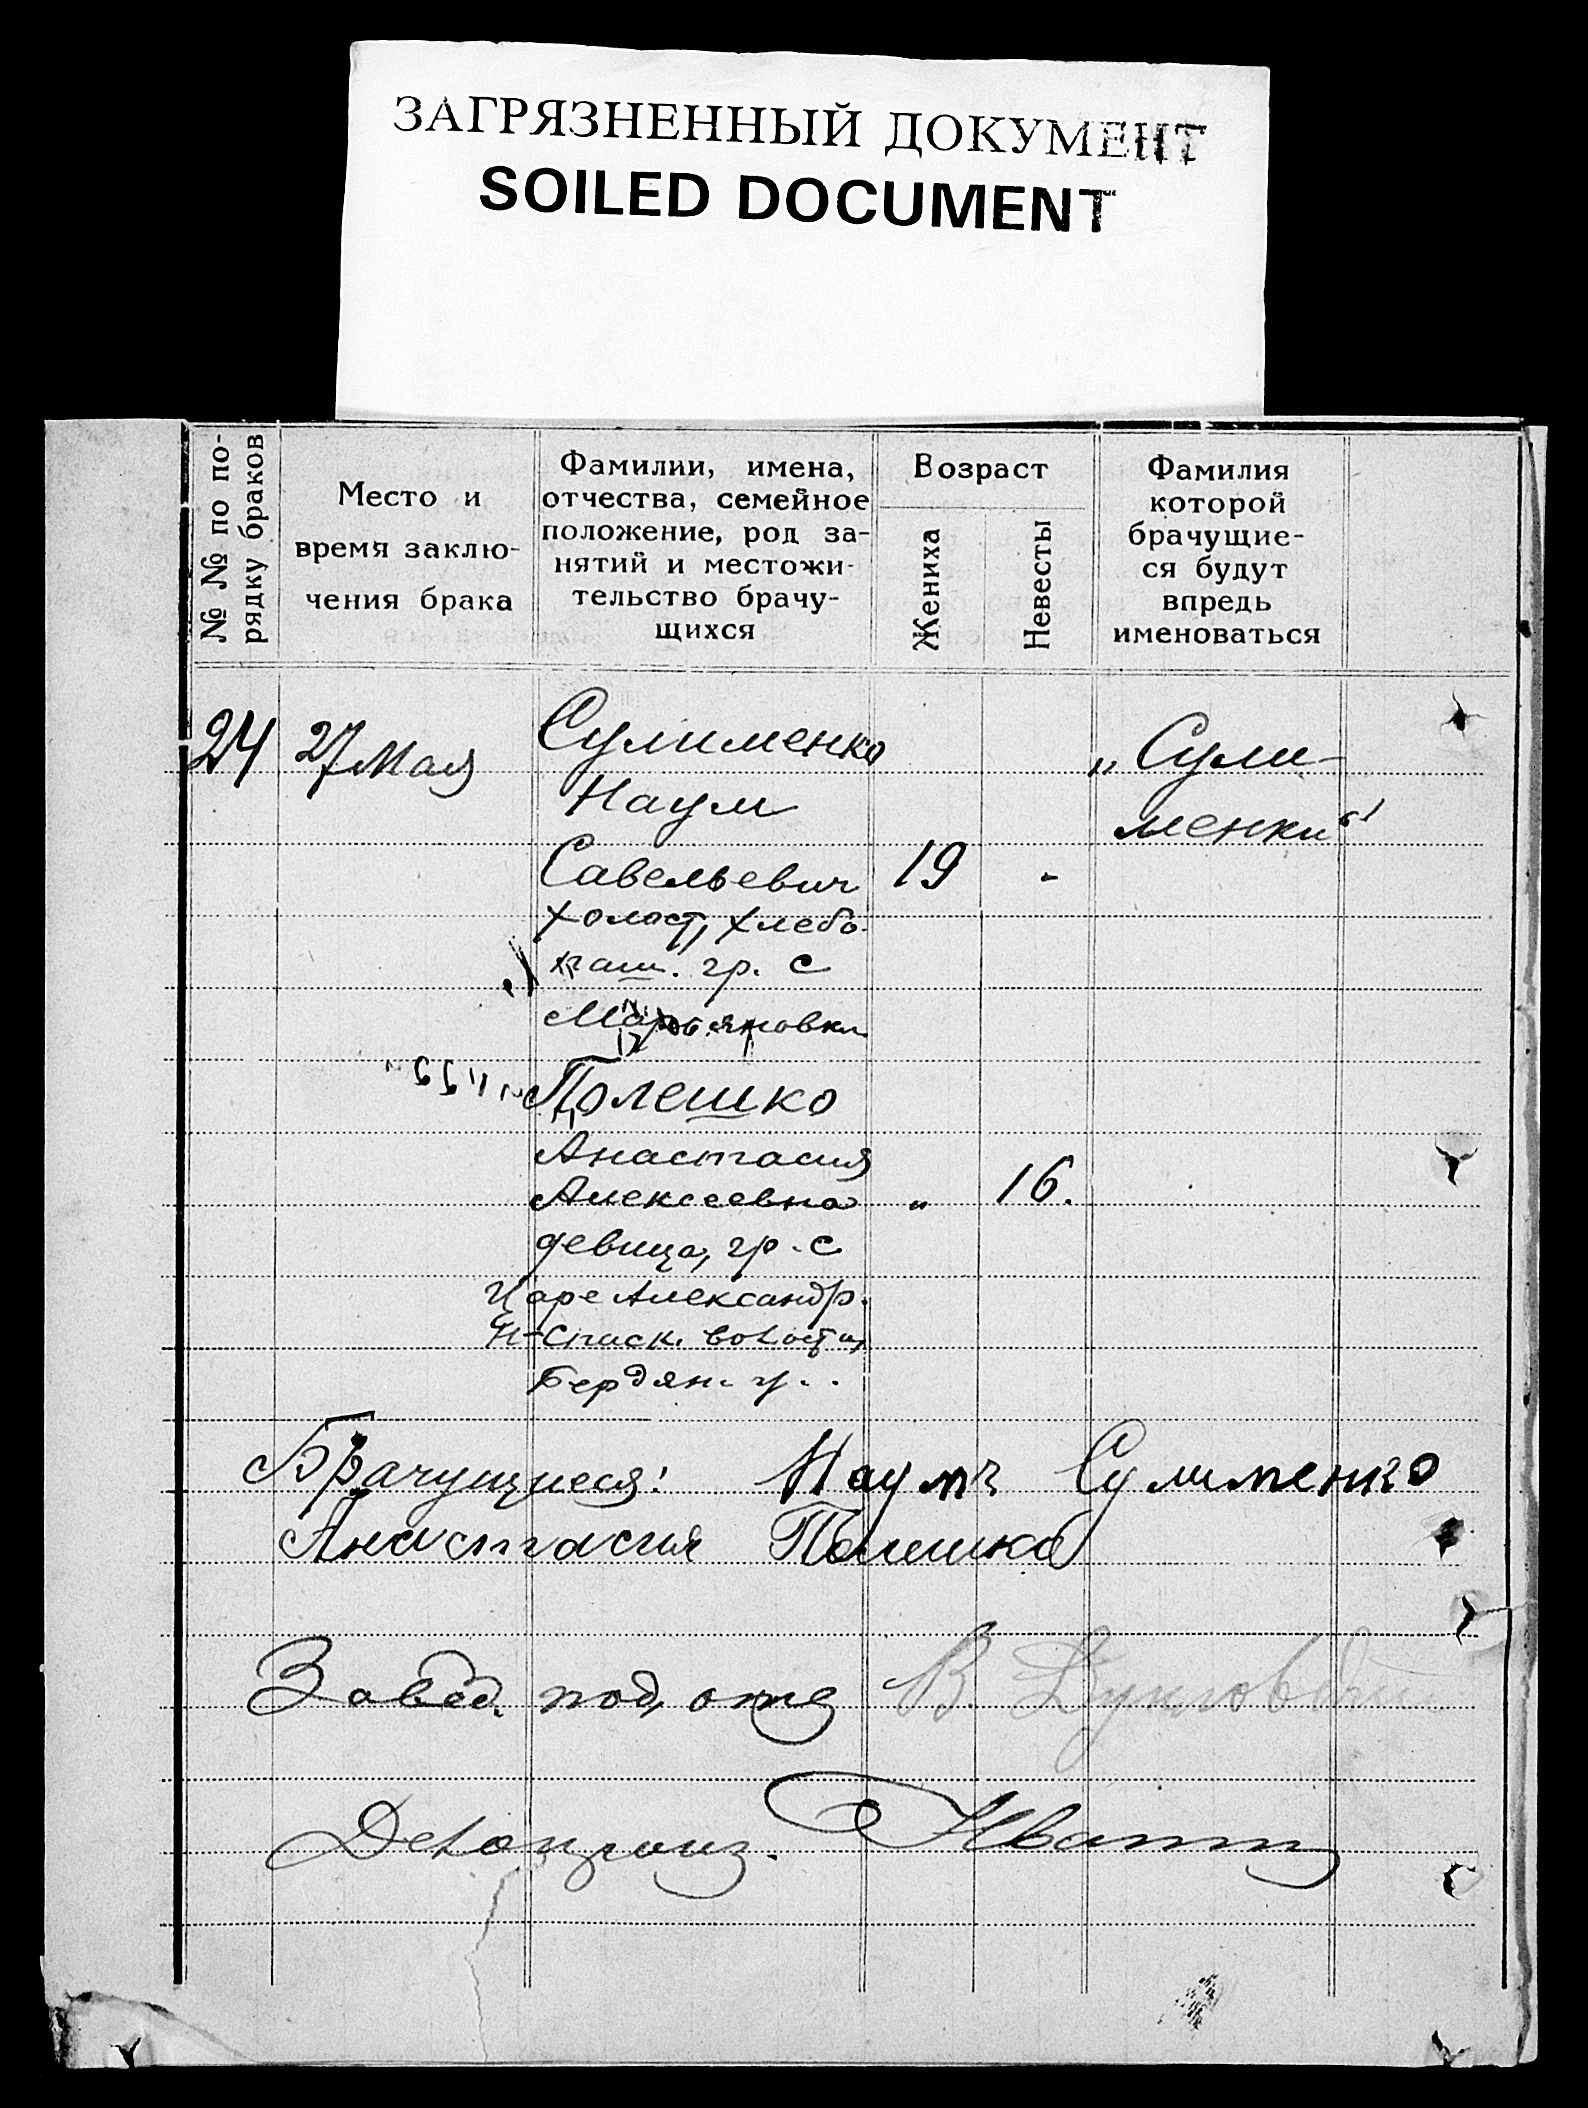 ЗАГРЯЗНЕННЫЙ ДОКУМЕНТ
SOILED DOCUMENT
№ № по по-
рядку браков
Место и
время заклю-
чения брака
Фамилии, имена,
отчества, семейное
положение, род за-
нятий и местожи-
тельство брачу-
щихся
Возраст
Жениха
Невесты
Фамилия
которой
брачущие-
ся будут
впредь
именоваться
24 27 Мая Сулименко „Сули-
Наум менки“
Савельевич 19 -
холост, хлебо-
паш. гр. с
Марьяновки
Полешко
Анастасия
Алексеевна „ 16.
девица, гр. с
Царе Александр.
Н-Спаск. волости,
Бердян. у.
Брачущиеся: Наумъ Сулименко
Анастасия Полешко
Завед. под, отд
В.
Делопроиз.